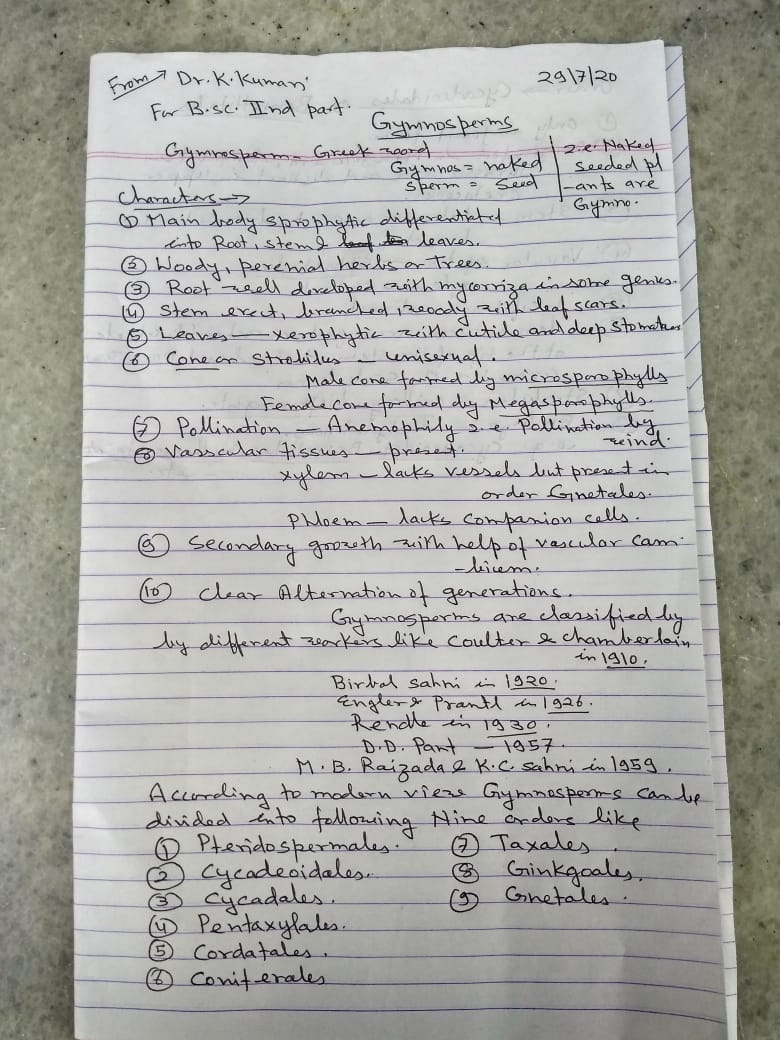 From → Dr. K. Kumari 29/7/20
For B.sc. IInd part.
Gymnosperms
Gymnosperm - Greek word
Gymnos = naked
sperm = seed
i.e. Naked
seeded pl
-ants are
Gymno.
Characters →
① Main body sprophytic differentiated
into Root, stem & leaves.
② Woody, perenial herbs or Trees.
③ Root well developed with mycorriza in some genus.
④ Stem erect, branched, woody with leaf scars.
⑤ Leaves — xerophytic with cuticle and deep stomata
⑥ Cone or Strobilus - unisexual.
Male cone formed by microsporophylls
Female cone formed by Megasporophylls.
⑦ Pollination — Anemophily i.e. Pollination by
wind.
⑧ Vasscular tissues — present.
xylem — lacks vessels but present in
order Gnetales.
Phloem — lacks companion cells.
⑨ Secondary growth with help of vascular cam-
-bium.
⑩ Clear Alternation of generations.
Gymnosperms are classified by
by different workers like Coulter & Chamberlain
in 1910.
Birbal Sahni in 1920.
Engler & Prantl in 1926.
Rendle in 1930.
D.D. Pant — 1957.
M.B. Raizada & K.C. Sahni in 1959.
According to modern view Gymnosperms can be
divided into following Nine orders like
① Pteridospermales. ⑦ Taxales.
② Cycadeoidales. ⑧ Ginkgoales.
③ Cycadales. ⑨ Gnetales.
④ Pentaxylales.
⑤ Cordatales.
⑥ Coniferales